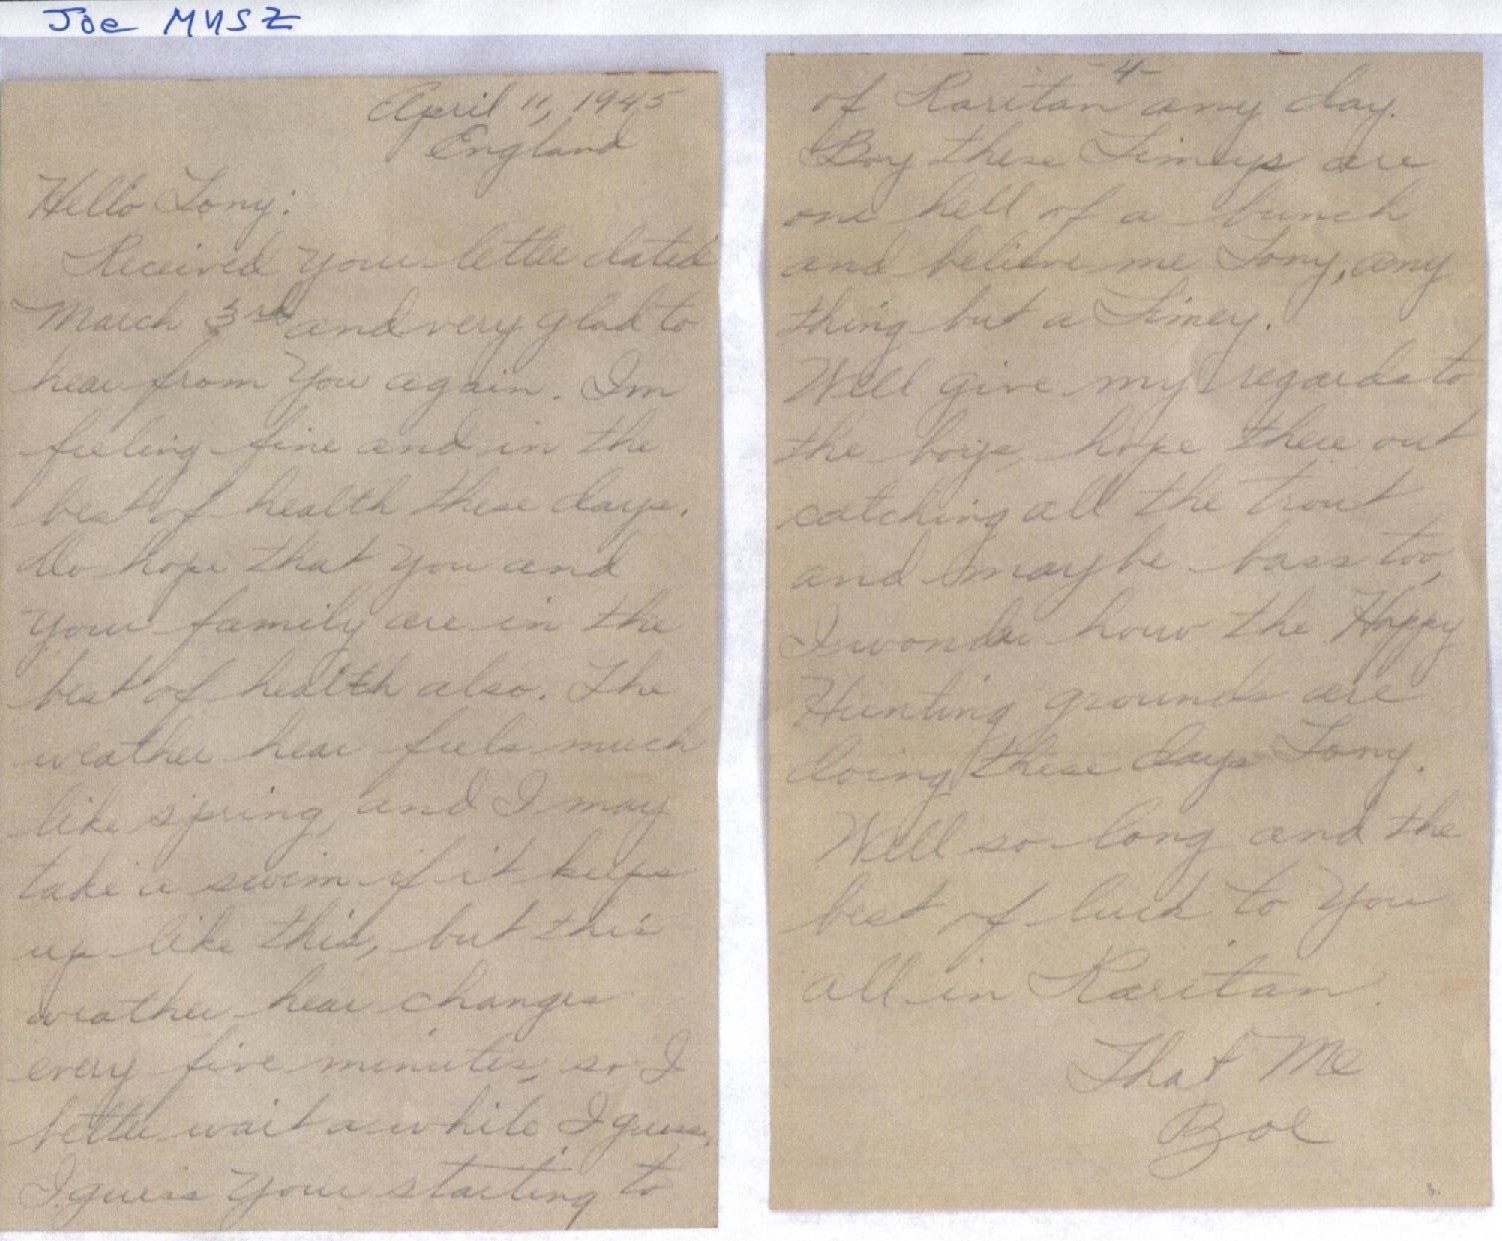 Joe MUSZ
April 11, 1945
England
Hello Tony:
Received your letter dated
March 3rd and very glad to
hear from You again. Im
feeling fine and in the
best of health these days.
Do hope that You and
Your family are in the
best of health also. The
weather hear feels much
like spring, and I may
take a swim if it keeps
up like this, but this
weather hear changes
every five minutes, so I
better wait a while I guess.
I guess Your starting to
-4-
of Raritan any day.
Boy these Limeys are
one hell of a bunch
and believe me Tony, any
thing but a Limey.
Well give my regards to
the boys, hope there out
catching all the trout
and maybe bass too,
I wonder how the Happy
Hunting grounds are
doing these days Tony.
Well so long and the
best of luck to You
all in Raritan.
That Me